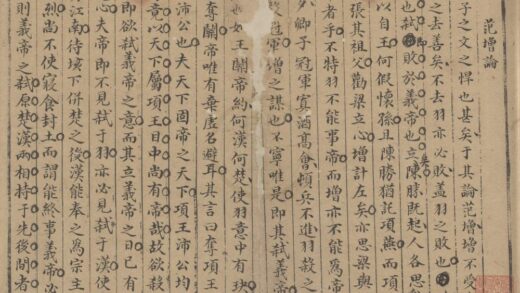 范增論
子之文之悖也甚矣于其論范增增不受
之去善矣不去羽亦必敗蓋羽之敗也
也弒敗於義帝也立陳勝既起人各思
以自王何假懷孫且陳勝猶託項燕而
張其祖父勸梁立心增計左矣亦思梁與
者乎不特羽不能事帝而增亦不能為帝
卿子冠軍寘酒高會頓兵不進羽殺之
冠軍增之謀也不寧唯是即其弒義帝
也如王關帝約何漢何楚使羽意中有玦
奪關帝唯有棄虛名避耳其言曰奪項王
沛公也夫天下固帝之天下項王沛公均
竟以天下屬項王目中尚有帝哉故欲殺
即欲弒義帝之意而其立義帝之日已有
心夫帝即不見弒于羽亦必見弒于漢使
江南待垓下併楚之後漢能奉之為宗主
烈尚不使寢食封土而謂能終事義帝必
則義帝之弒原楚漢兩相持于先後閒者